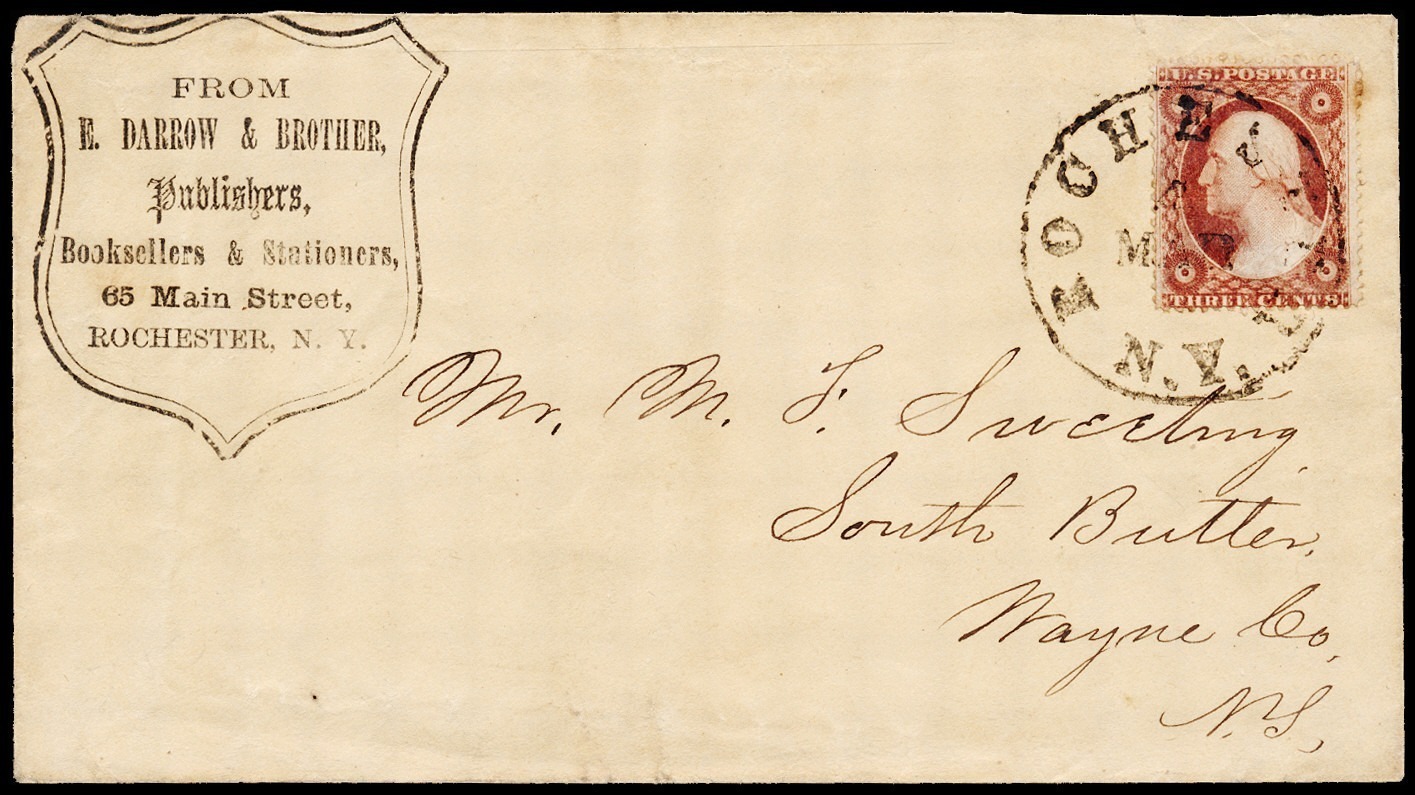 FROM
E. DARROW & BROTHER,
Publishers,
Booksellers & Stationers,
65 Main Street,
ROCHESTER, N. Y.
U.S. POSTAGE
THREE CENTS
ROCHESTER
N.Y.
Mr. M. F. Sweeting
South Butter.
Wayne Co,
N.Y,